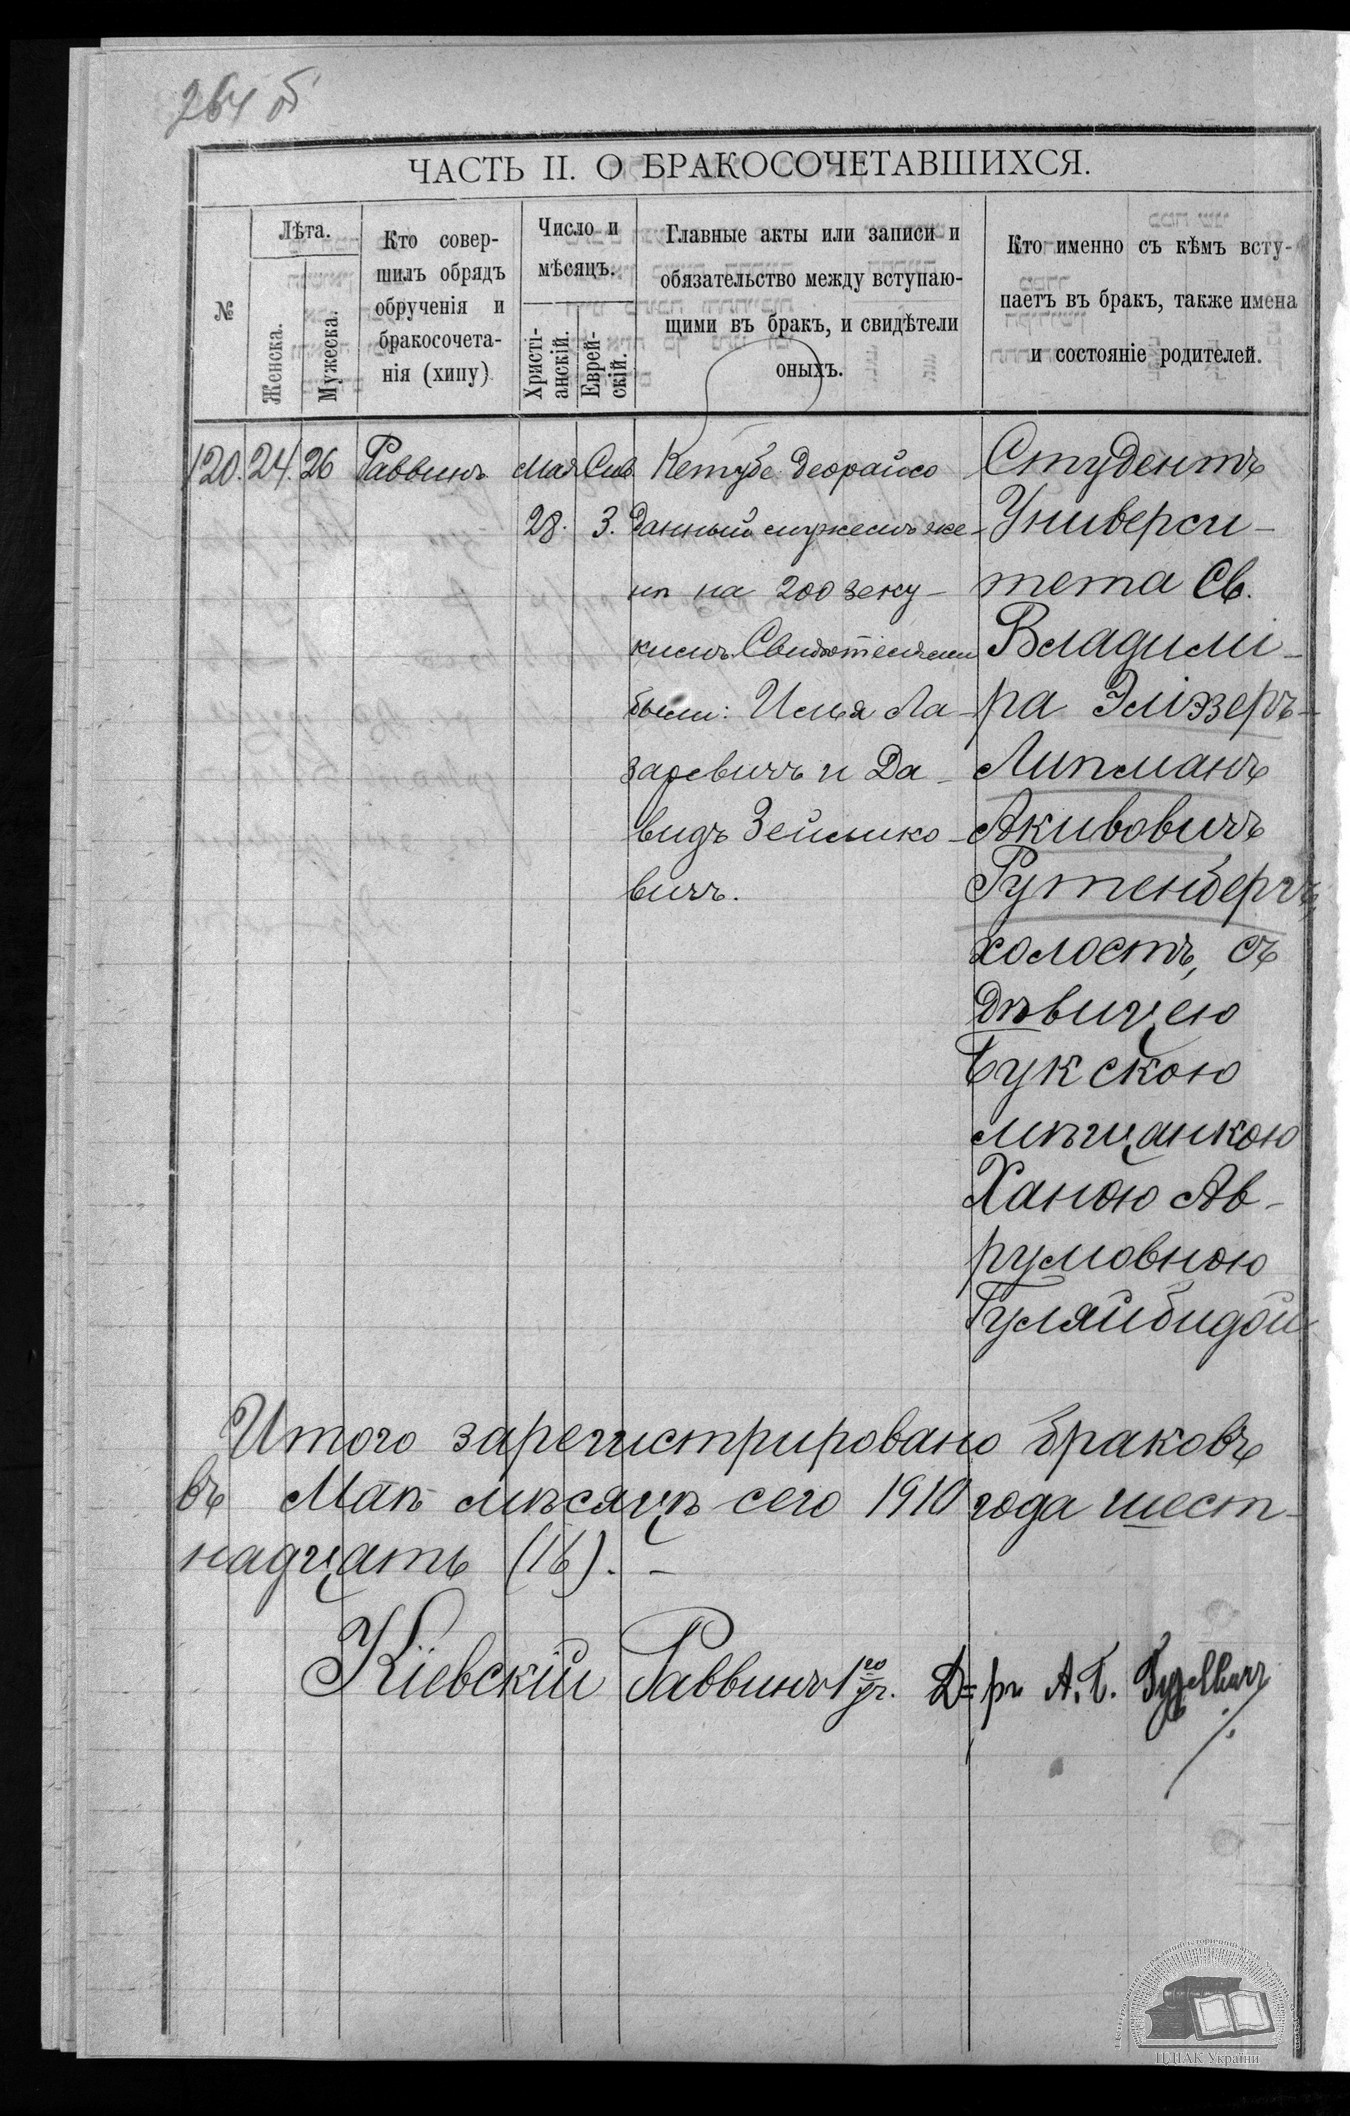 264 об
ЧАСТЬ II. О БРАКОСОЧЕТАВШИХСЯ.
№
Лѣта.
Женска.
Мужеска.
Кто совер-
шилъ обрядъ
обрученія и
бракосочета-
нія (хипу)
Число и
мѣсяцъ.
Христі-
анскій.
Еврей-
скій.
Главные акты или записи и
обязательство между вступаю-
щими въ бракъ, и свидѣтели
оныхъ.
Кто именно съ кѣмъ всту-
паетъ въ бракъ, также имена
и состояніе родителей.
120. 24. 26 Раввинъ Мая Сив.
28. 3.
Кетубе деорайсо
данный мужемъ же-
нѣ на 200 зеку-
кимъ. Свидѣтелями
были: Илья Ла-
заревичъ и Да-
видъ Зейлико-
вичъ.
Студентъ
Универси-
тета Св.
Владимі-
ра Эліэзеръ-
Липманъ
Акивовичъ
Рутенбергъ,
холостъ, съ
дѣвицею
Букскою
мѣщанкою
Ханою Ав-
румовною
Гуляйбидой
Итого зарегистрировано браковъ
въ Маѣ мѣсяцѣ сего 1910 года шест-
надцать (16). —
Кіевскій Раввинъ 1го уч. Д=ръ А. Б. Гуревичъ
ЦДІАК України